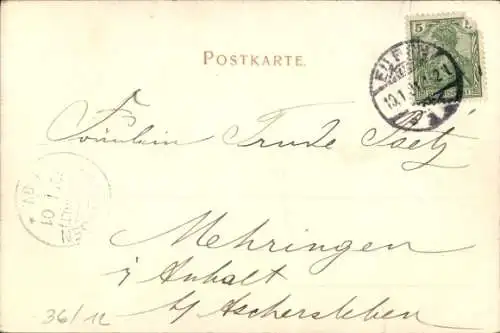 5
POSTKARTE.
10.1.
Fräulein Trude
Mehringen
i/ Anhalt
b/ Aschersleben
36/12